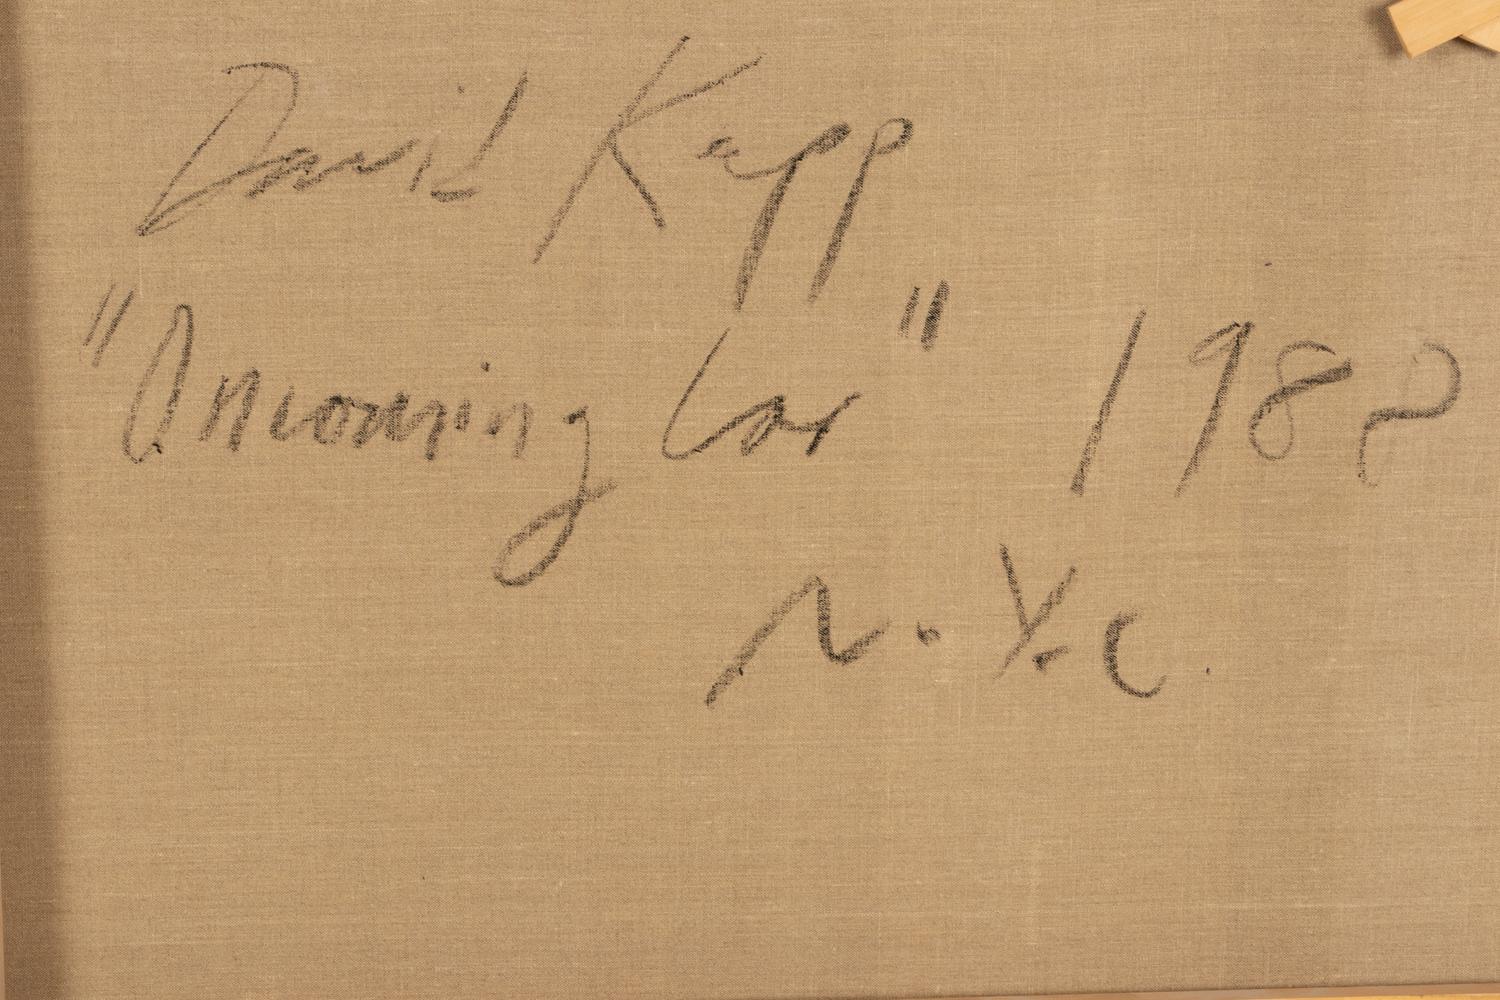 David Kapp
"Oncoming Car" 1988
N.Y.C.